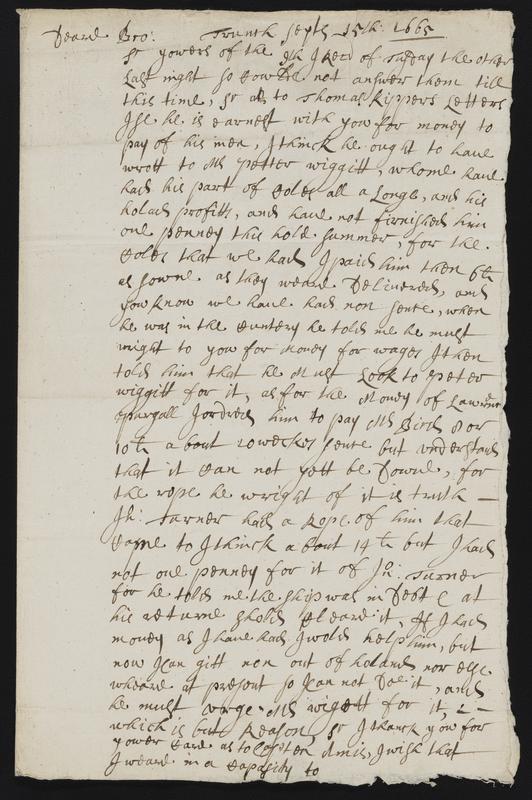 Deare Bro: Trunch Septr 15th: 1665
Sr yowers of the 9th I Recd of Tusday the other
Last night so could not answer them till
this time, Sr as to Thomas Rippers Letters
I se he is earnest with you for money to
pay of his men, I thinck he ought to haue
wrott to Mr Petter wiggitt, whome haue
had his part of Coles all a Longe, and his
holad profitts, and haue not firnished him
one penney this hold Summer, for the
Coles that we had I paid him then 6th
as sowne as they weare Deliuered, and
you know we haue had non sence, when
he was in the Cuntery he told me he must
wright to you for money for wages I then
told him that he Must Look to Peter
wiggitt for it, as for the Money of Lawrence
Spargall I ordred him to pay Mr Birch 8 or
10th a bout 10 weekes sence but vnderstand
that it Can not yett be Downe, for
the rope he wright of it is truth —
Jn: Turner had a Rope of him that
Came to I thinck a bout 14th but I had
not one penney for it of Jn: Turner
for he told me the ship was in Debt & at
his returne shold Cleare it, If I had
money as I haue had I wold help him, but
now I Can gitt non out of holand nor else
wheare at present so I Can not Doe it, and
he must vrge Mr wigett for it,
which is but Reason, Sr I thanck you for
yower Care as to Capten Amis, I wish that
I weare in a Capasity to